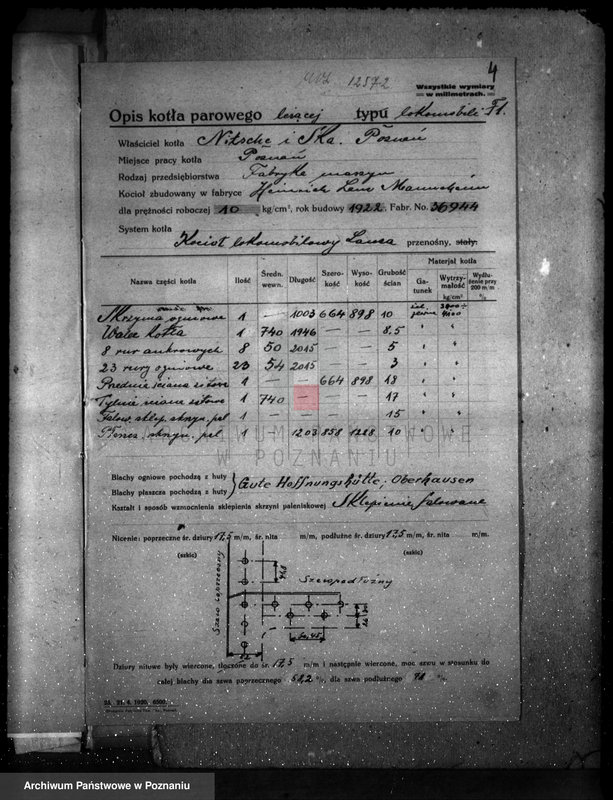 12572
4
Wszystkie wymiary
w milimetrach.
Opis kotła parowego leżącej typu lokomobili F1.
Właściciel kotła Nitsche i Ska. Poznań
Miejsce pracy kotła Poznań
Rodzaj przedsiębiorstwa Fabryka maszyn
Kocioł zbudowany w fabryce Heinrich Lanz Mannheim
dla prężności roboczej 10 kg/cm², rok budowy 1922. Fabr. No. 36944
System kotła
Kocioł lokomobilowy Lanza przenośny, stały.
Nazwa części kotła Ilość Średn. wewn. Długość Szerokość Wysokość Grubość ścian Materjał kotła Gatunek Wytrzymałość kg/cm² Wydłużenie przy 200 m/m %
Skrzynia ogniowa 1 — 1003 664 898 10
Walec kotła 1 740 1946 — — 8.5 " "
8 rur ankrowych 8 50 2015 — — 5 " "
23 rury ogniowe 23 54 2015 3 " "
Przednia ściana 1 — — 664 898 18 " "
Tylnia ściana 1 740 — — — 17 " "
1 — — — — 15 " "
1 — 1203 858 1228 10 " "
ARCHIWUM PAŃSTWOWE
W POZNANIU
Blachy ogniowe pochodzą z huty
Blachy płaszcza pochodzą z huty } Gute Hoffnungshütte, Oberhausen
Kształt i sposób wzmocnienia sklepienia skrzyni paleniskowej Sklepienie falowane
Nicenie: poprzeczne śr. dziury 17,5 m/m, śr. nita m/m, podłużne śr. dziury 17,5 m/m, śr. nita m/m.
(szkic) (szkic)
Szew poprzeczny
Szew podłużny
Dziury nitowe były wiercone, tłoczone do śr. 17,5 m/m i następnie wiercone, moc szwu w stosunku do
całej blachy dla szwu poprzecznego 58,2 %, dla szwu podłużnego 71 %.
25. 21. 4. 1920. 6500.
Archiwum Państwowe w Poznaniu